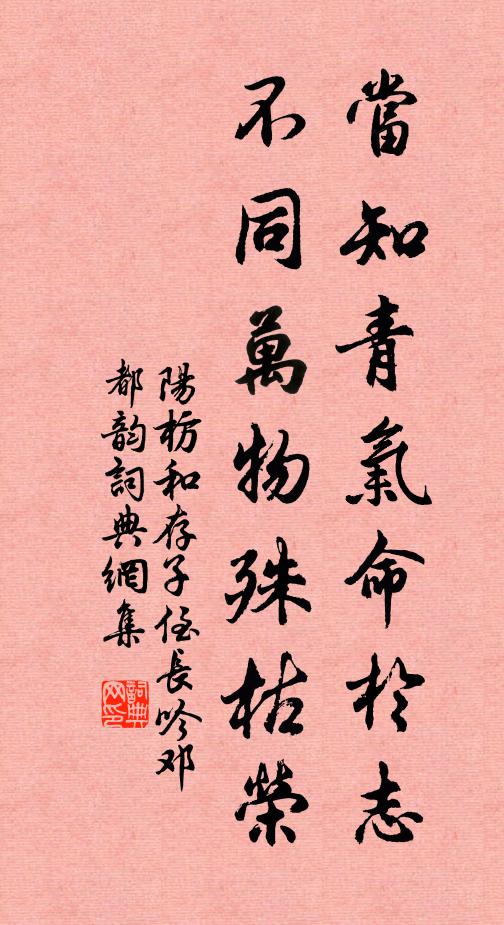 當知青氣命於志
不同萬物殊枯榮
陽枋和存子侄長吟邓
都韵詞典網集
詞典網印